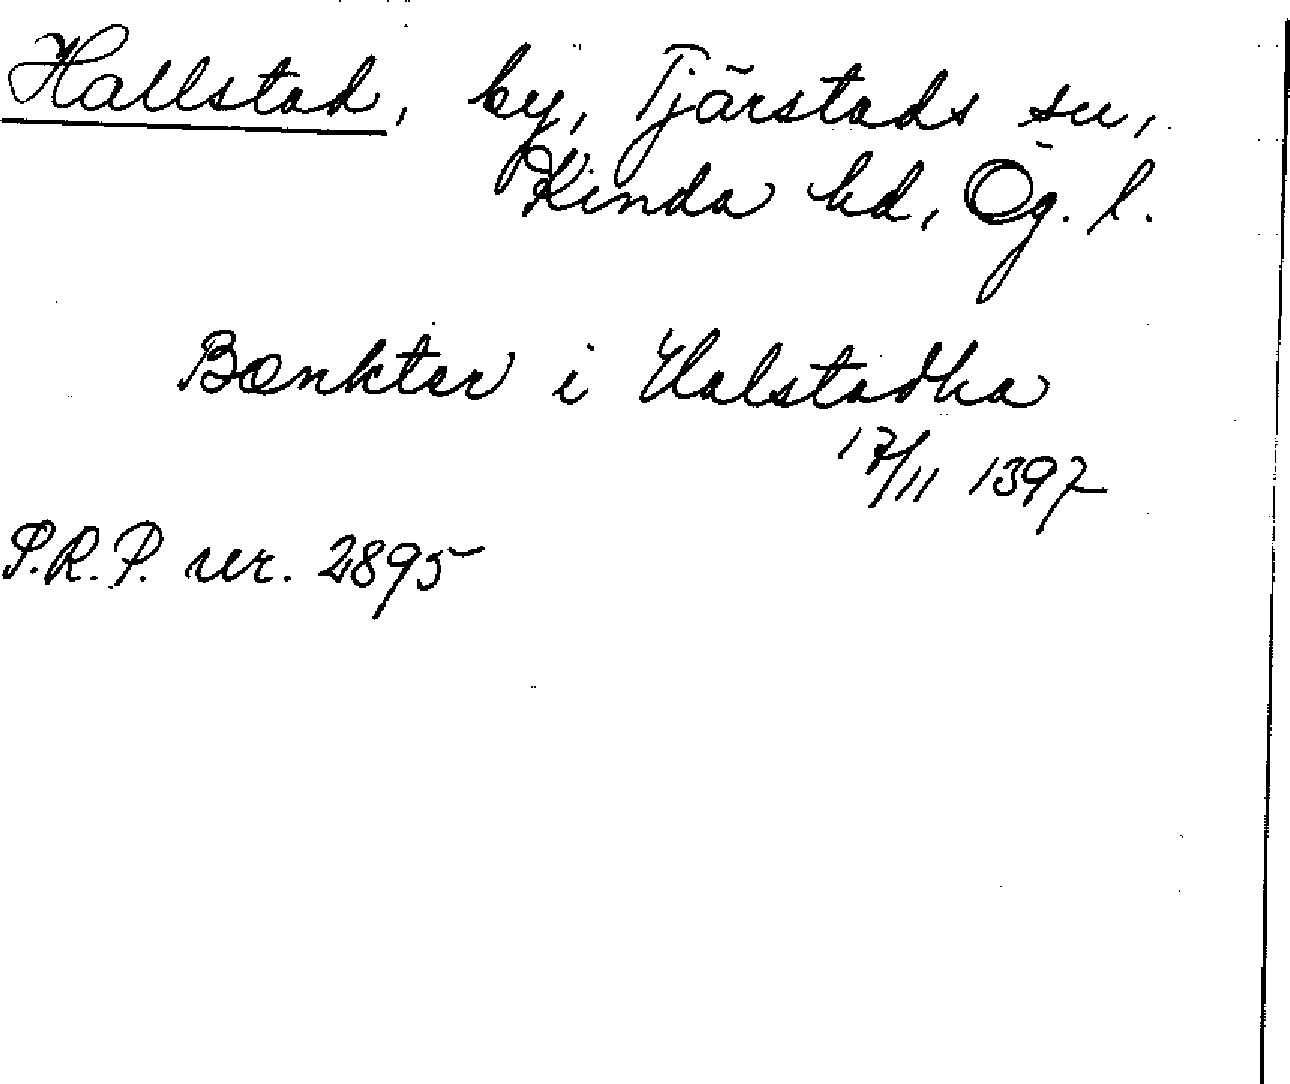 Hallstad, by, Tjärstads sn,
Kinda hd, Ög. l.
Bænkter i Halstadha
17/11 1397
S.R.P. nr. 2895